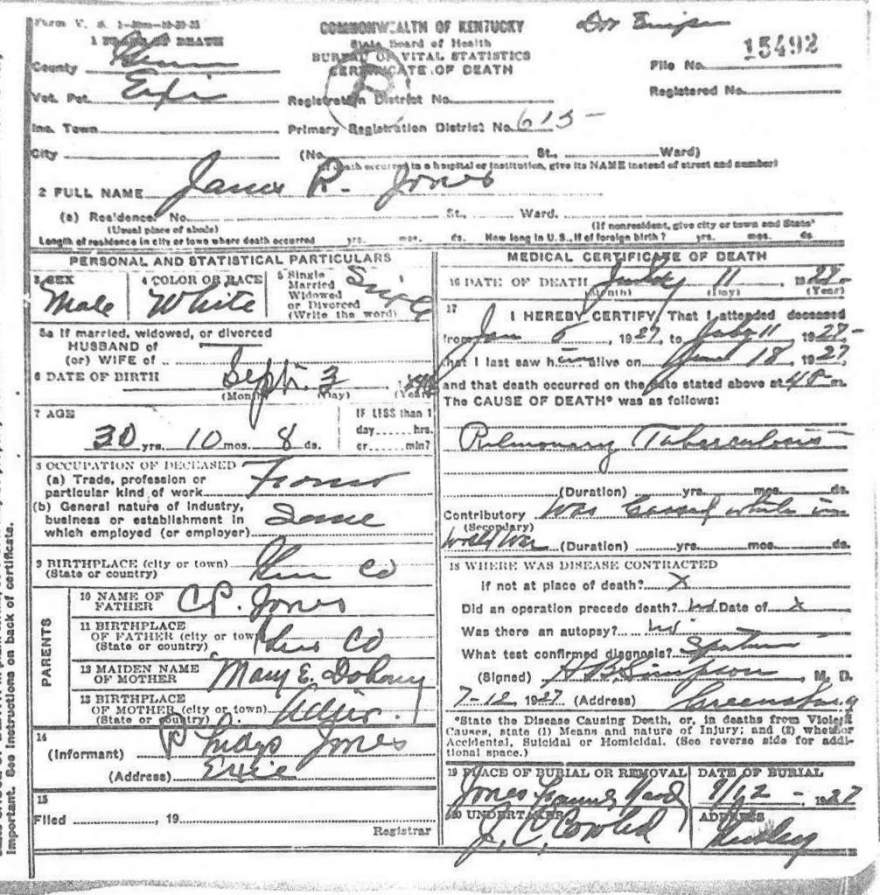 Form V. S.
COMMONWEALTH OF KENTUCKY
State Board of Health
BUREAU OF VITAL STATISTICS
CERTIFICATE OF DEATH
File No. 15492
Registered No.
1 PLACE OF DEATH
County
Vot. Pct. Exie
Registration District No.
Inc. Town
Primary Registration District No. 615
City
(No. St., Ward)
(If death occurred in a hospital or institution, give its NAME instead of street and number)
2 FULL NAME James R. Jones
(a) Residence. No. St., Ward.
(Usual place of abode)
(If nonresident, give city or town and State)
Length of residence in city or town where death occurred yrs. mos. ds. How long in U. S., if of foreign birth? yrs. mos. ds.
PERSONAL AND STATISTICAL PARTICULARS
3 SEX Male
4 COLOR OR RACE White
5 Single
Married
Widowed
or Divorced
(Write the word)
5a If married, widowed, or divorced
HUSBAND of
(or) WIFE of
6 DATE OF BIRTH Sept. 3
(Month) (Day) (Year)
7 AGE
30 yrs. 10 mos. 8 ds.
IF LESS than 1
day hrs.
or min?
8 OCCUPATION OF DECEASED
(a) Trade, profession or
particular kind of work
(b) General nature of industry,
business or establishment in
which employed (or employer) Same
9 BIRTHPLACE (city or town)
(State or country) Co
PARENTS
10 NAME OF
FATHER C.P. Jones
11 BIRTHPLACE
OF FATHER (city or town)
(State or country) Co
12 MAIDEN NAME
OF MOTHER Mary E. Dohoney
13 BIRTHPLACE
OF MOTHER (city or town)
(State or country) Adair.
14
(Informant) Jones
(Address) Exie
15
Filed , 19
Registrar
MEDICAL CERTIFICATE OF DEATH
16 DATE OF DEATH July 11 1927
(Month) (Day) (Year)
17
I HEREBY CERTIFY, That I attended deceased
from Jan 1927, to July 11 1927
that I last saw him alive on June 18, 1927,
and that death occurred on the date stated above at m.
The CAUSE OF DEATH* was as follows:
Pulmonary Tuberculosis
(Duration) yrs. mos. ds.
Contributory Was Gassed while in
(Secondary)
World War (Duration) yrs. mos. ds.
18 WHERE WAS DISEASE CONTRACTED
if not at place of death? X
Did an operation precede death? No. Date of X
Was there an autopsy? No
What test confirmed diagnosis? Sputum
(Signed) H.B. Simpson, M. D.
7-12 1927 (Address) Greensburg
*State the Disease Causing Death, or, in deaths from Violent
Causes, state (1) Means and nature of Injury; and (2) whether
Accidental, Suicidal or Homicidal. (See reverse side for addi-
tional space.)
19 PLACE OF BURIAL OR REMOVAL
Jones
DATE OF BURIAL
7/12 - 1927
20 UNDERTAKER
J. C.
ADDRESS
Important. See instructions on back of certificate.